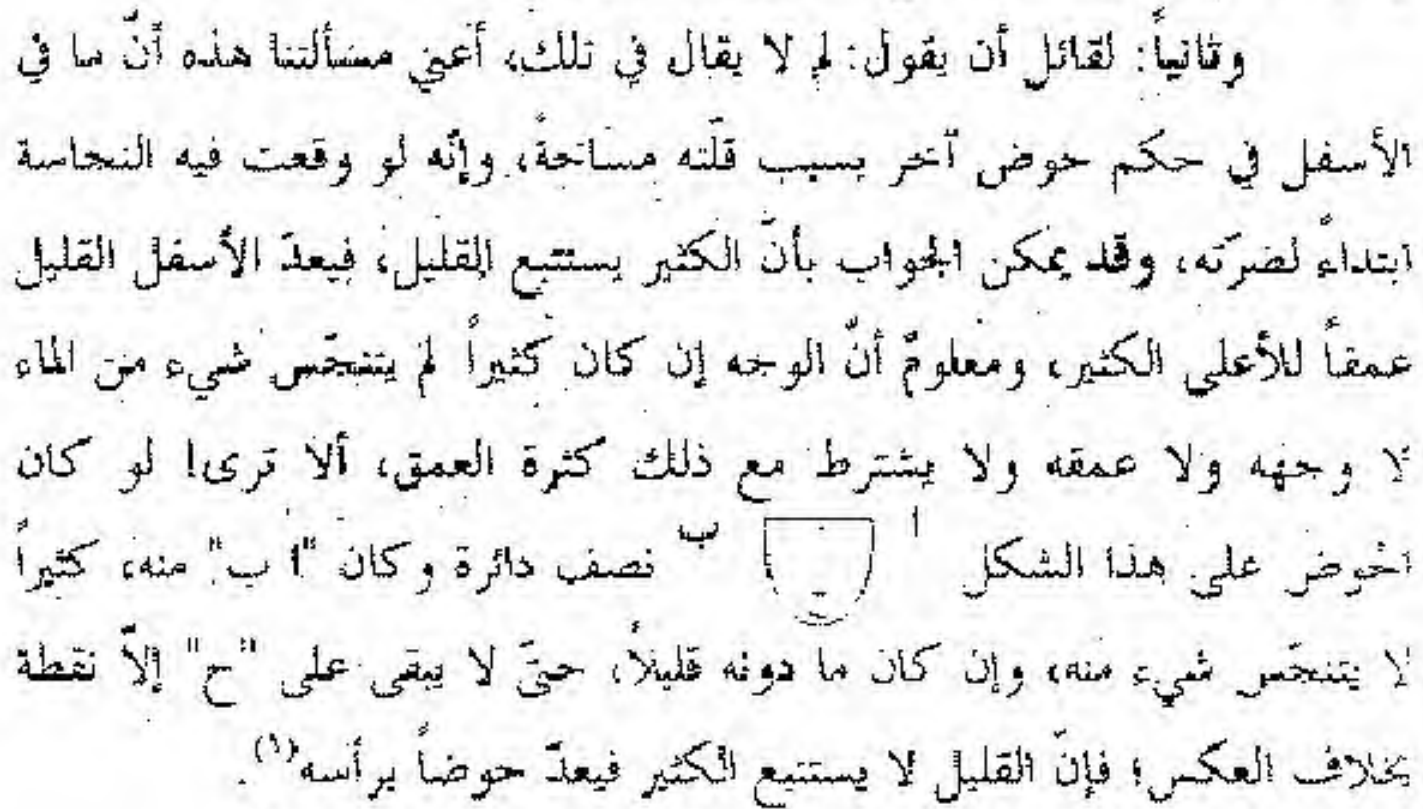 وثانياً: لقائل أن يقول: لم لا يقال في تلك، أعني مسألتنا هذه أنّ ما في
الأسفل في حكم حوض آخر بسبب قلّته مساحةً، وإنّه لو وقعت فيه النجاسة
ابتداءً لضرّته، وقد يمكن الجواب بأنّ الكثير يستتبع القليل، فيعدّ الأسفل القليل
عمقاً للأعلى الكثير، ومعلومٌ أنّ الوجه إن كان كثيراً لم يتنجّس شيء من الماء
لا وجهه ولا عمقه ولا يشترط مع ذلك كثرة العمق، ألا ترى! لو كان
الحوض على هذا الشكل ا ب نصف دائرة وكان "ا ب" منه، كثيراً
لا يتنجّس شيء منه، وإن كان ما دونه قليلاً، حتّى لا يبقى على "ح" إلاّ نقطة
بخلاف العكس؛ فإنّ القليل لا يستتبع الكثير فيعدّ حوضاً برأسه(١).